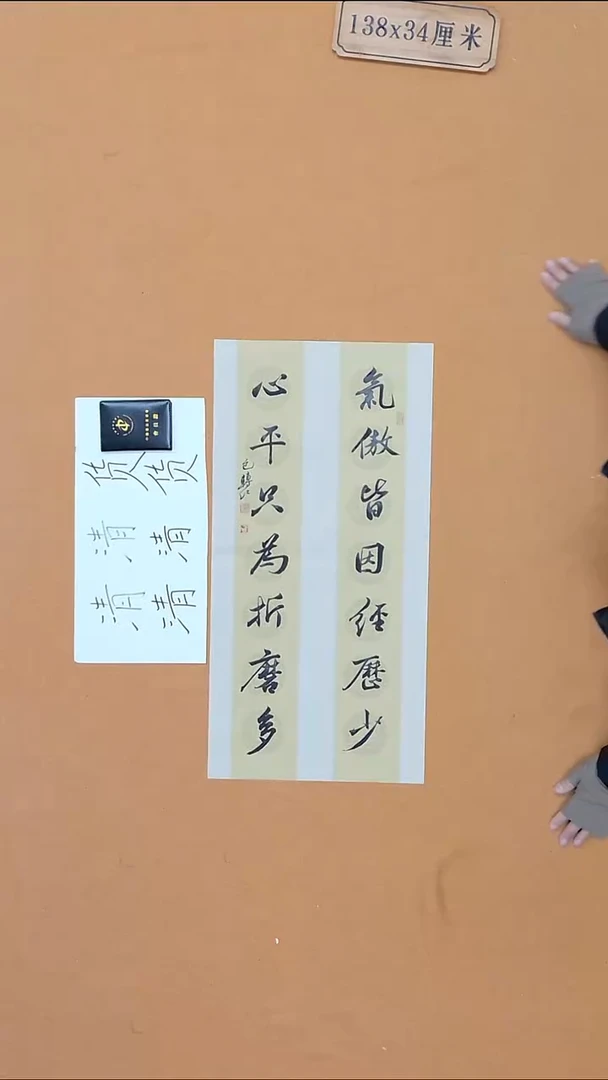 138x34厘米
氣傲皆因經歷少
心平只為折磨多
货 货
清 清
清 清